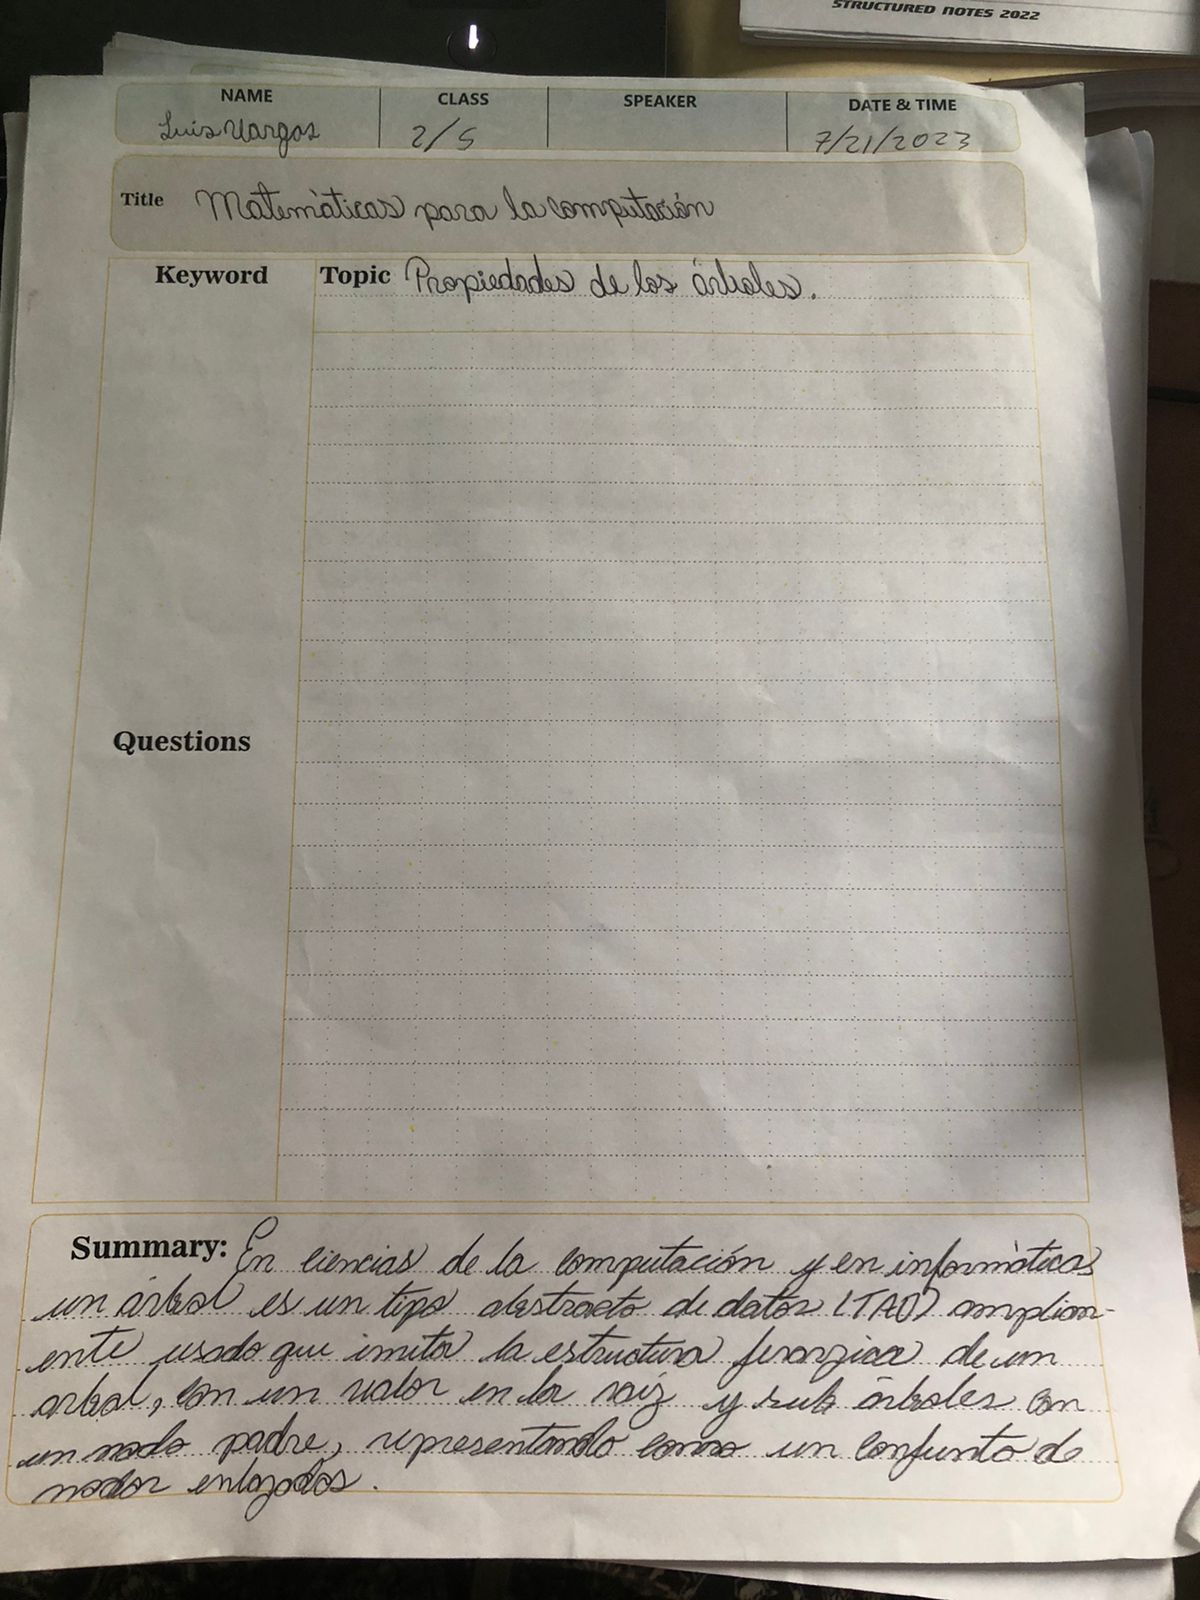 STRUCTURED NOTES 2022
NAME CLASS SPEAKER DATE & TIME
Luis Vargas 2/5 7/21/2023
Title Matemáticas para la computación
Keyword Topic Propiedades de los árboles.
Questions
Summary: En ciencias de la computación y en informática
un árbol es un tipo abstracto de datos (TAD) ampliam-
ente usado que imita la estructura jerarzica de un
arbol, con un valor en la raiz y sub árboles con
un nodo padre, representando como un conjunto de
nodos enlazados.